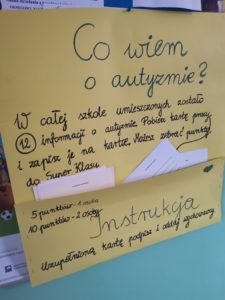 Co wiem
o autyzmie?
W całej szkole umieszczonych zostało
12 informacji o autyzmie. Pobierz kartę pracy
i zapisz je na karcie. Możesz zebrać punkty
do Super Klasy.
5 punktów - 1 osoba
10 punktów - 2 osoby
Instrukcja
Uzupełnioną kartę podpisz i oddaj wychowawcy